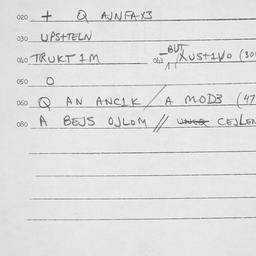 020 + Q AJNFAX3
030 UPS+TELN
040 TRUKT 1M 041 -BUT XUS+1V0 (30
050 O
060 Q AN ANC1K / A MOD3 (47
080 A BEJS OJLOM // CEJLEN